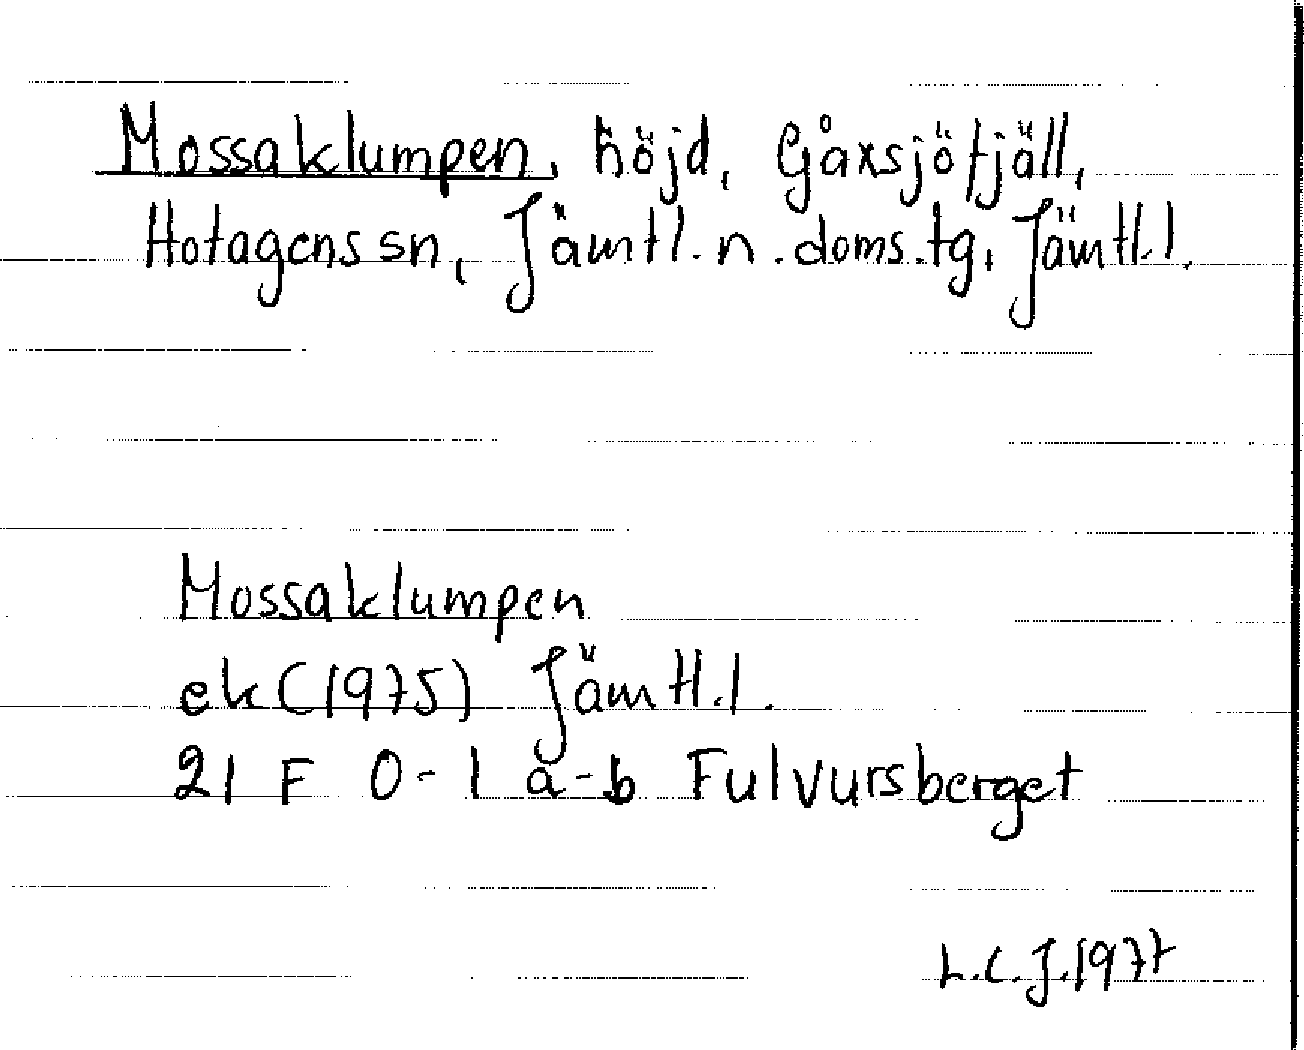 Mossaklumpen, höjd, Gåxsjöfjäll,
Hotagens sn, Jämtl. n. doms.tg, Jämtl.l.
Mossaklumpen
ek (1975) Jämtl.l.
21 F 0-1 a-b Fulvursberget
L.C.J. 1977